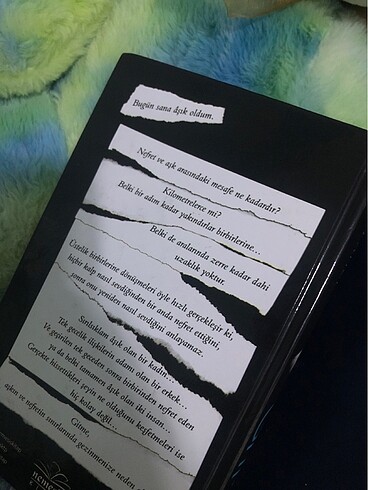 Bugün sana âşık oldum.
Nefret ve aşk arasındaki mesafe ne kadardır?
Kilometrelerce mi?
Belki bir adım kadar yakındırlar birbirlerine...
Belki de aralarında zerre kadar dahi
uzaklık yoktur.
Üstelik birbirlerine dönüşmeleri öyle hızlı gerçekleşir ki,
hiçbir kalp nasıl sevdiğinden bir anda nefret ettiğini,
sonra onu yeniden nasıl sevdiğini anlayamaz.
Sonsuzluk
aşık olan bir kadın...
Tek gecelik ilişkilerin adamı olan bir erkek...
Ve geçirilen tek geceden sonra birbirinden nefret eden
ya da belki tamamen âşık olan iki insan...
Gerçekte hissettikleri şeyin ne olduğunu keşfetmeleri ise
hiç kolay değil...
Gitme,
aşkın ve nefretin sınırlarında gezinmenize neden